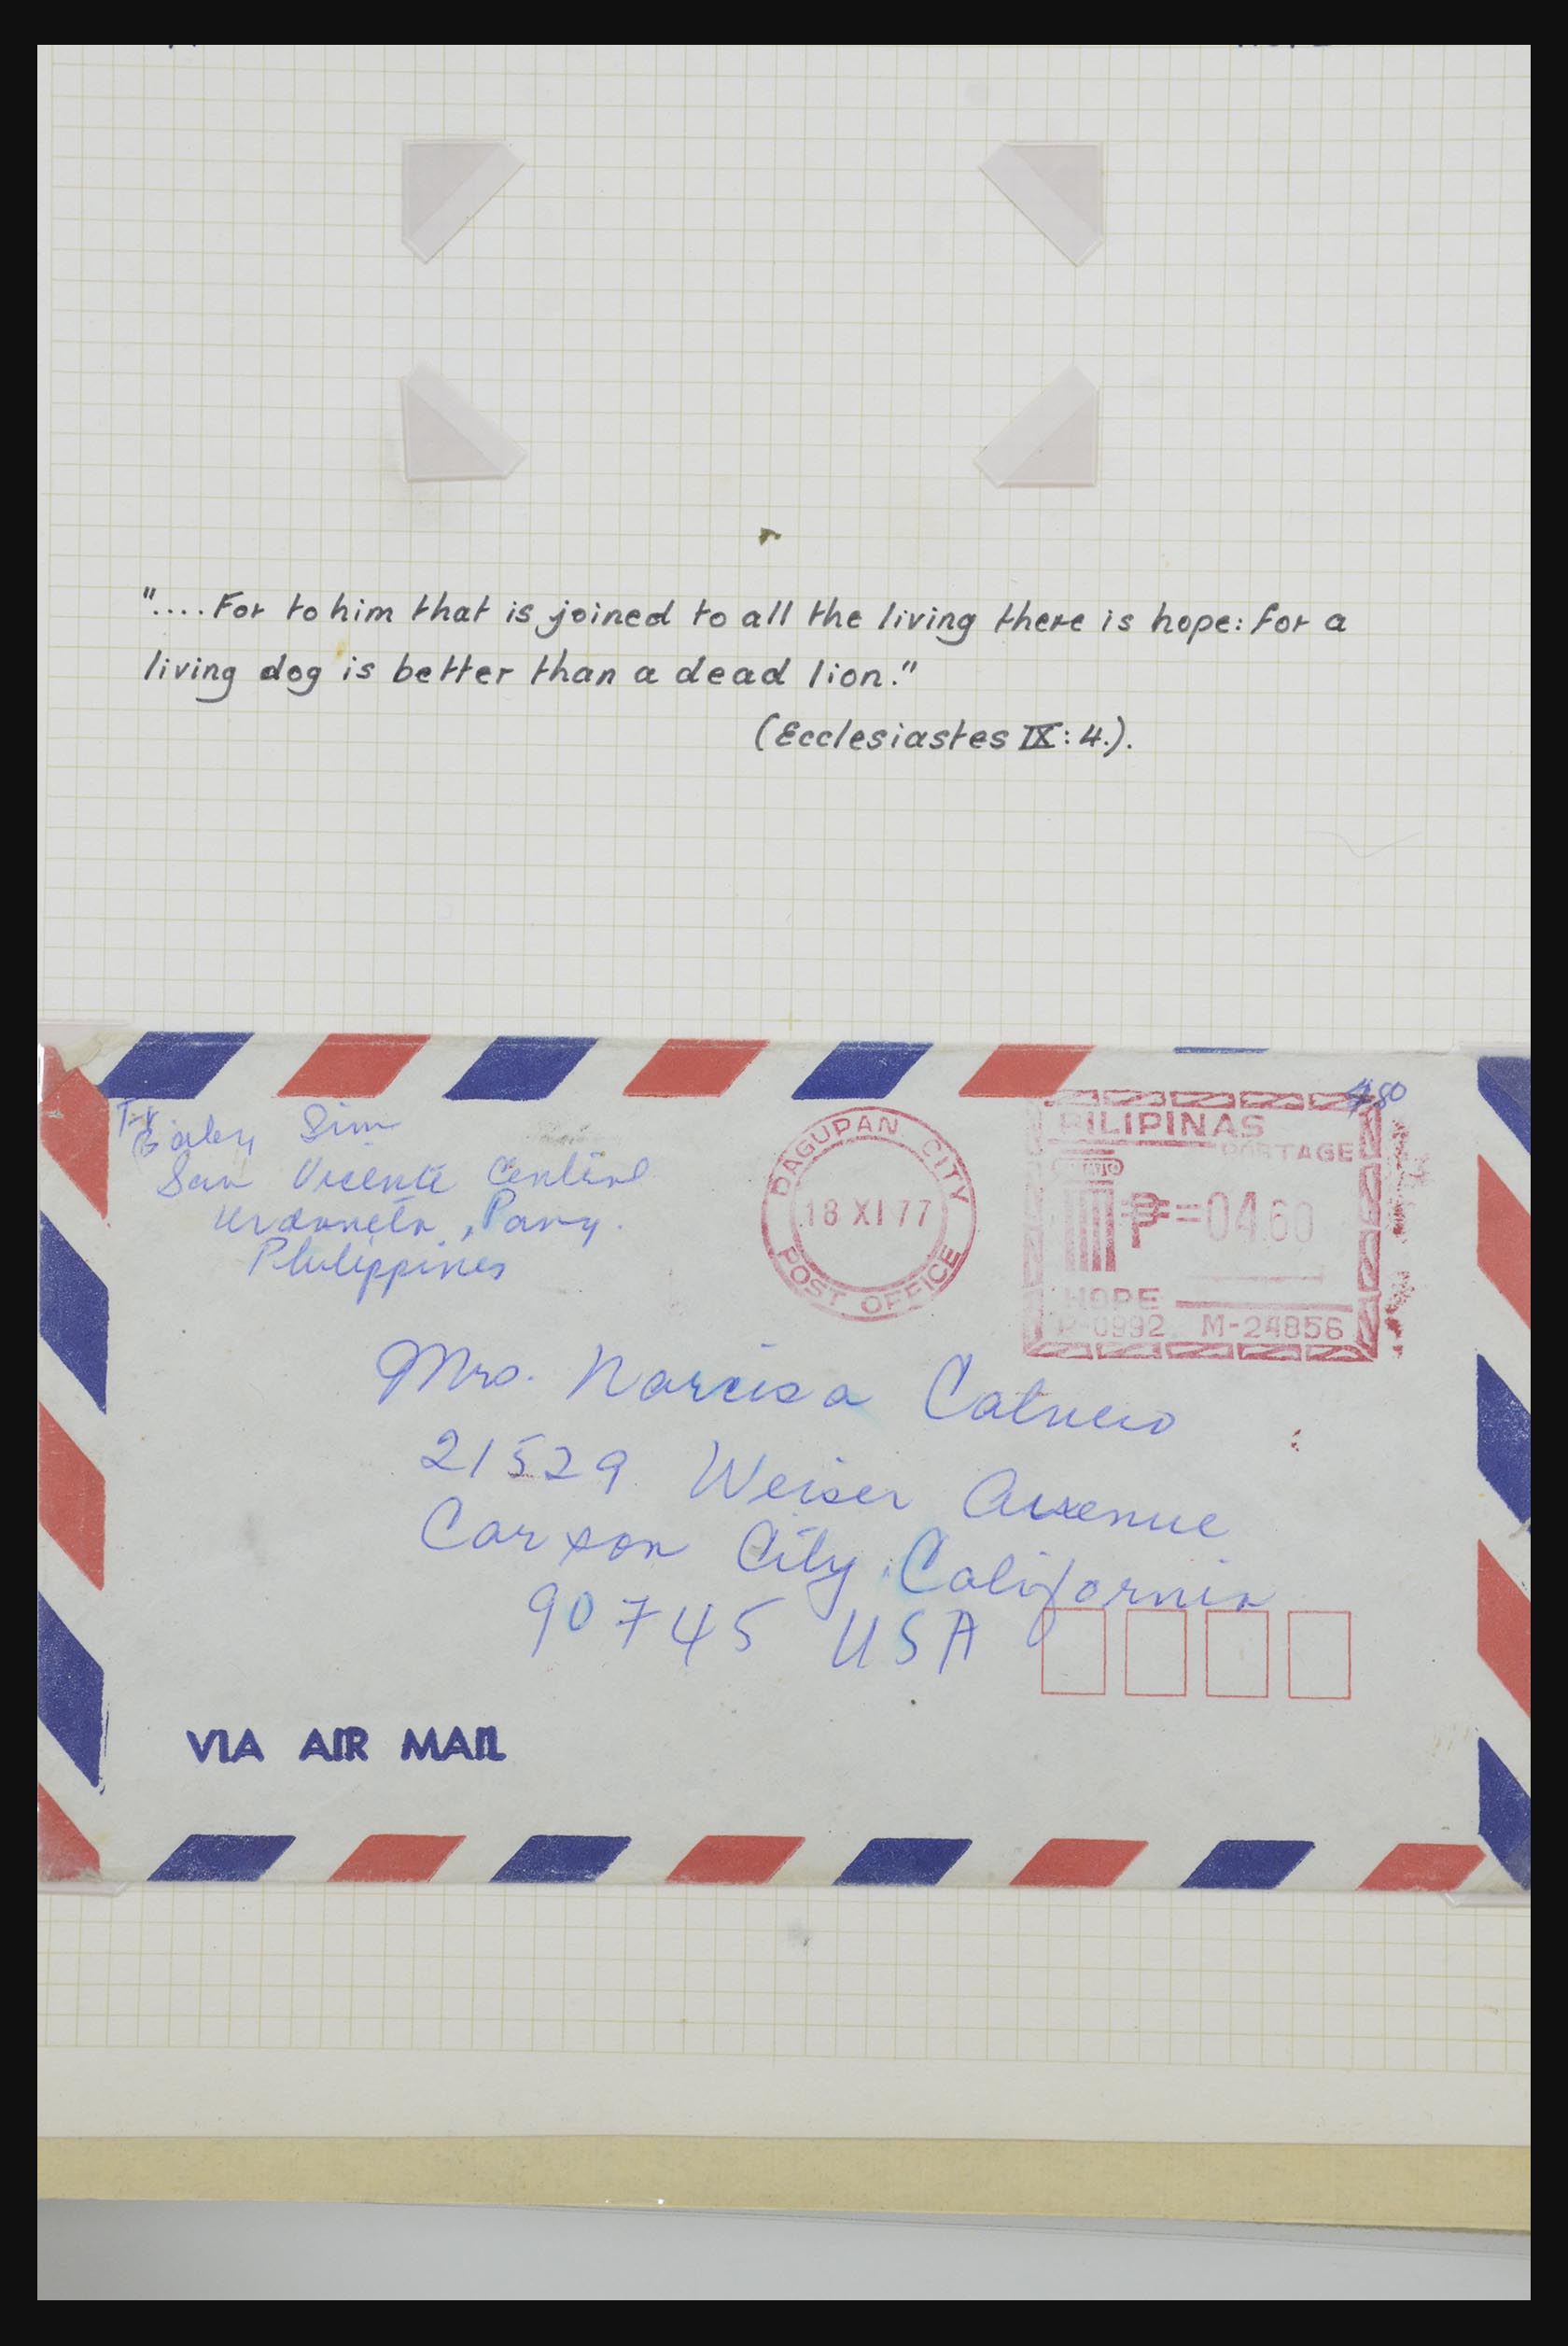 "....For to him that is joined to all the living there is hope: for a
living dog is better than a dead lion."
(Ecclesiastes IX: 4.).
Fr
Sim
San Vicente Central
Urdaneta, Pang.
Philippines
DAGUPAN CITY
18 XI 77
POST OFFICE
80
PILIPINAS
POSTAGE
₱=04.60
HOPE
P-0992 M-24856
Mrs. Narcisa
21529 Weiser Avenue
Carson City, California
90745 USA
VIA AIR MAIL